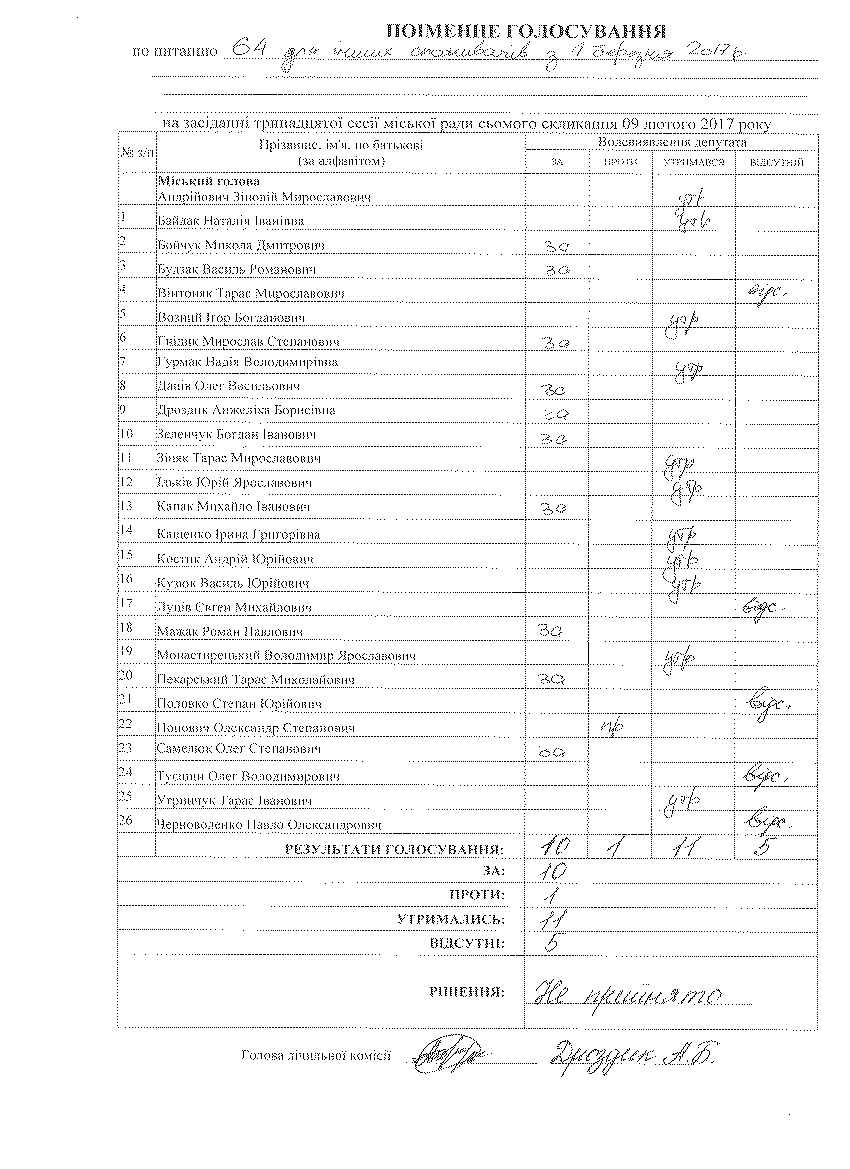 ПОІМЕННЕ ГОЛОСУВАННЯ
по питанню 64 для інших споживачів з 1 березня 2017р.
на засіданні тринадцятої сесії міської ради сьомого скликання 09 лютого 2017 року
№ з/п Прізвище, ім'я, по батькові (за алфавітом) Волевиявлення депутата
ЗА ПРОТИ УТРИМАВСЯ ВІДСУТНІЙ
Міський голова
Андрійович Зіновій Мирославович утр
1 Байдак Наталія Іванівна утр
2 Бойчук Микола Дмитрович за
3 Будзак Василь Романович за
4 Вінтоняк Тарас Мирославович відс.
5 Возний Ігор Богданович утр
6 Гнідик Мирослав Степанович за
7 Гурмак Надія Володимирівна утр
8 Даців Олег Васильович за
9 Дроздик Анжеліка Борисівна за
10 Зеленчук Богдан Іванович за
11 Зіняк Тарас Мирославович утр
12 Ільків Юрій Ярославович утр
13 Капак Михайло Іванович за
14 Кащенко Ірина Григорівна утр
15 Костик Андрій Юрійович утр
16 Кузюк Василь Юрійович утр
17 Лупів Євген Михайлович відс.
18 Мажак Роман Павлович за
19 Монастирецький Володимир Ярославович утр
20 Пекарський Тарас Миколайович за
21 Половко Степан Юрійович відс.
22 Попович Олександр Степанович пр
23 Самелюк Олег Степанович за
24 Олег Володимирович відс.
25 Угринчук Тарас Іванович утр
26 Черноволенко Павло Олександрович відс.
РЕЗУЛЬТАТИ ГОЛОСУВАННЯ: 10 1 11 5
ЗА: 10
ПРОТИ: 1
УТРИМАЛИСЬ: 11
ВІДСУТНІ: 5
РІШЕННЯ: Не прийнято
Голова лічильної комісії Дроздик А.Б.